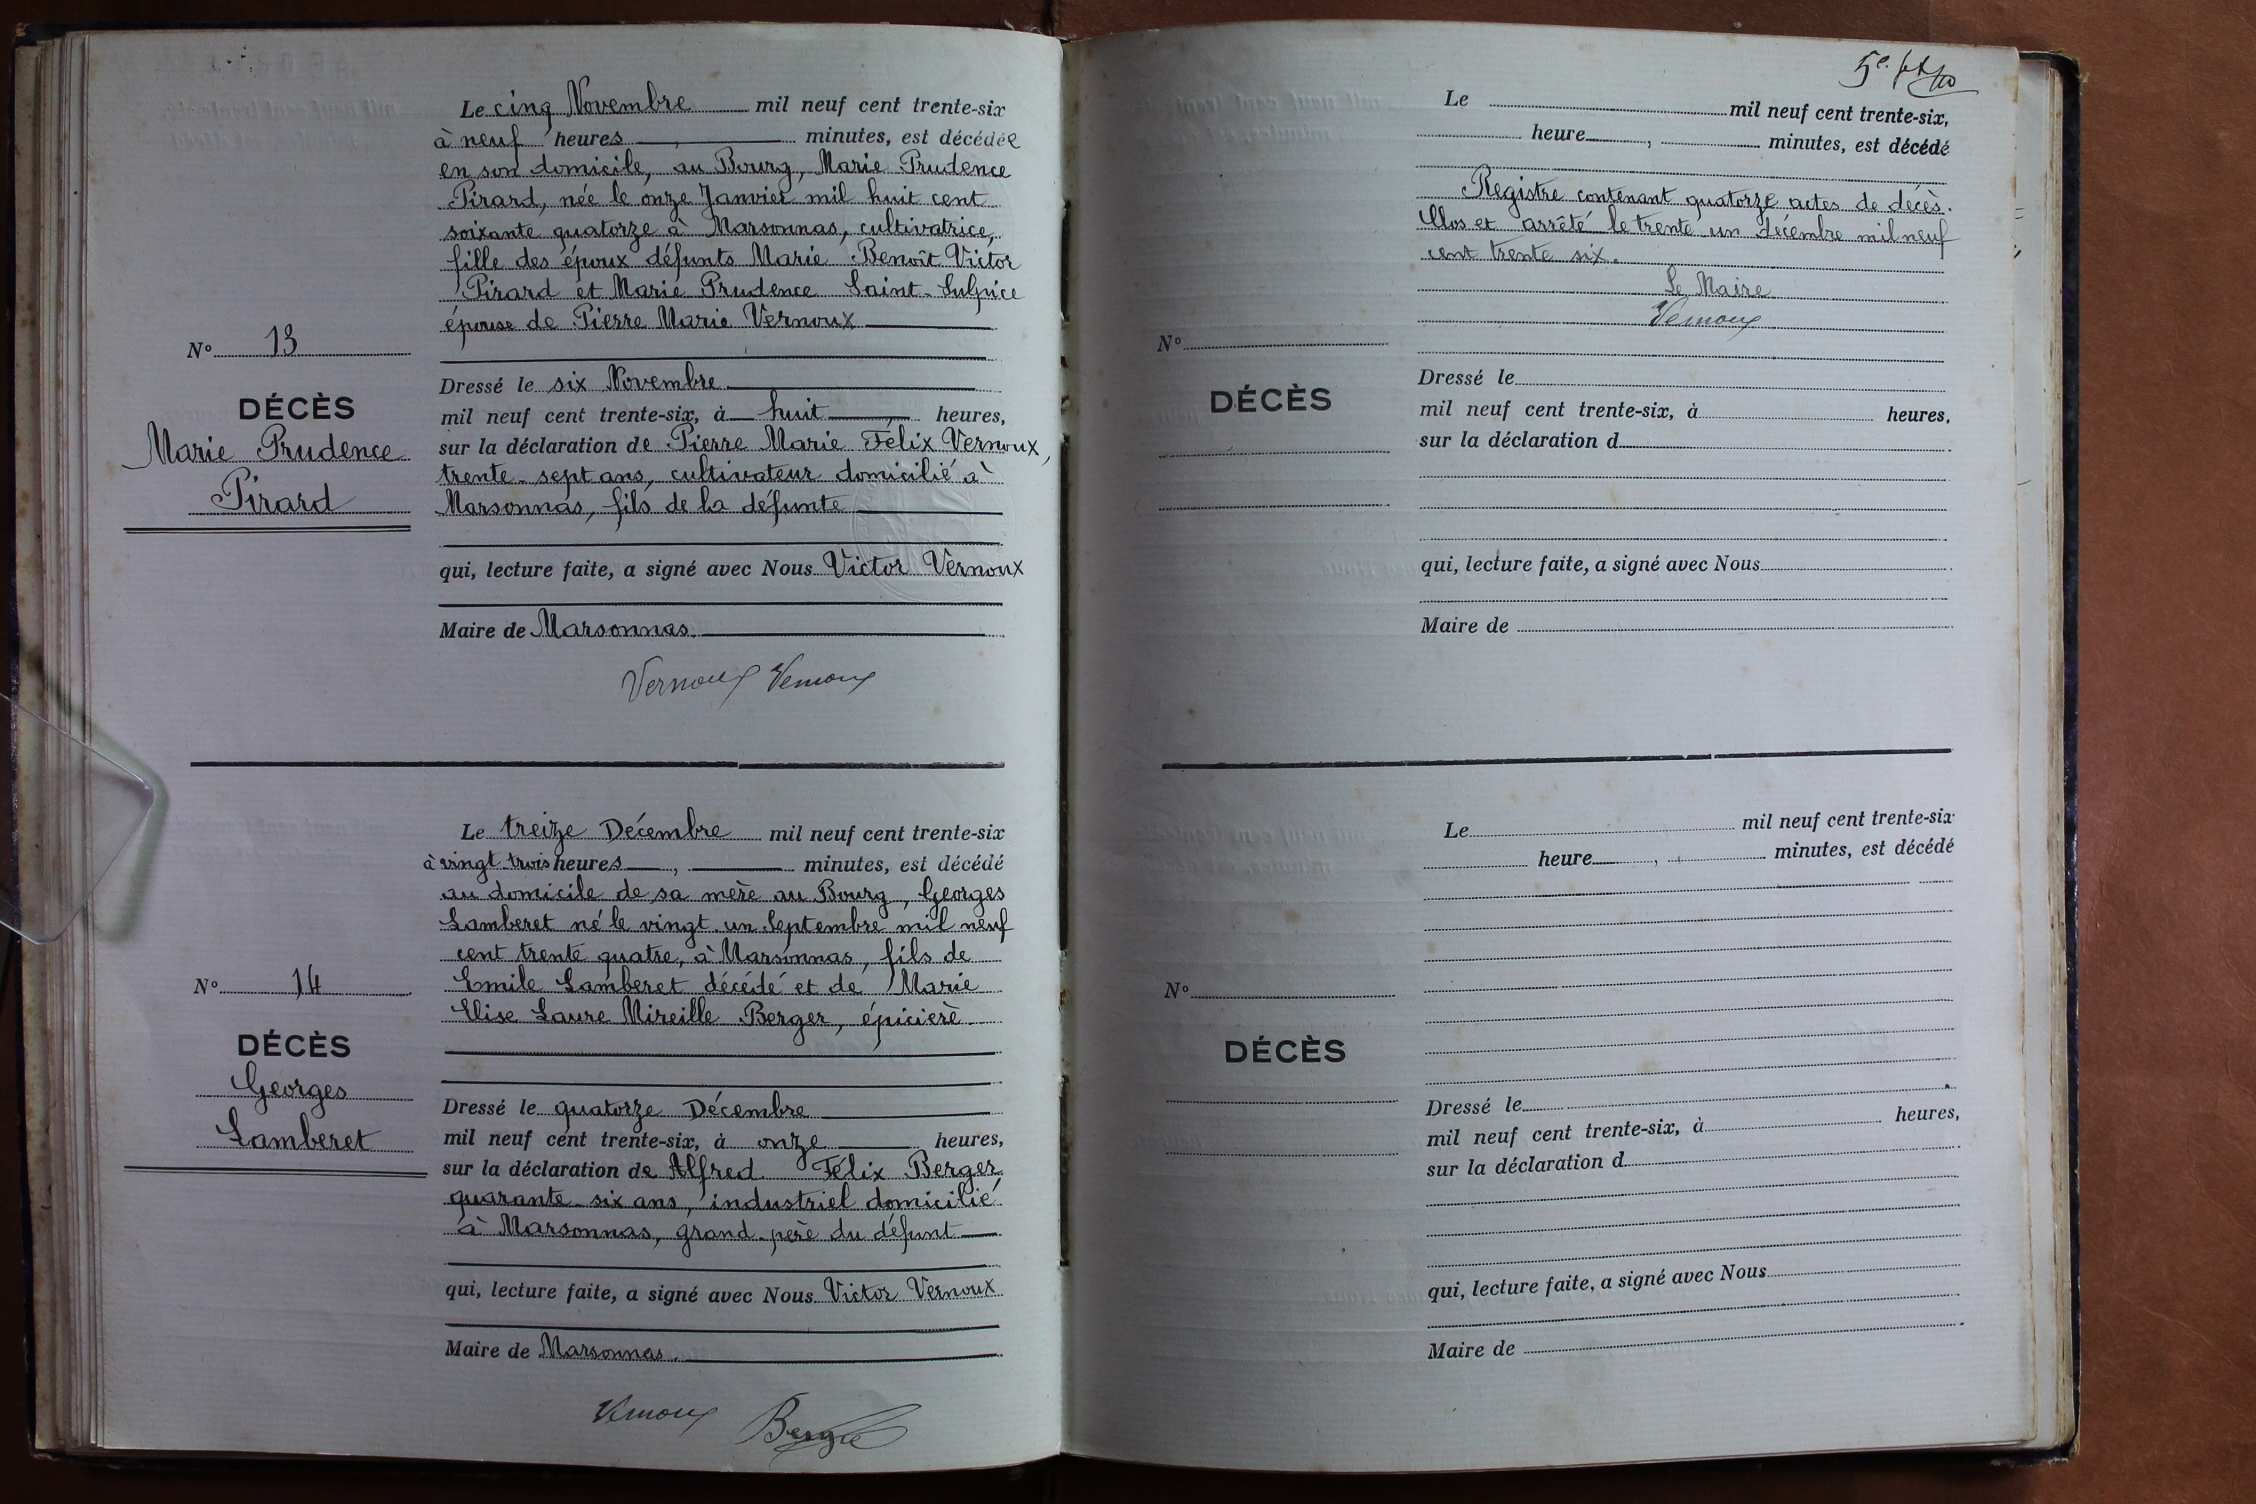 Le cinq Novembre mil neuf cent trente-six
à neuf heures, minutes, est décédée
en son domicile, au Bourg, Marie Prudence
Pirard, née le onze Janvier mil huit cent
soixante quatorze à Marsonnas, cultivatrice,
fille des époux défunts Marie Benoît Victor
Pirard et Marie Prudence Saint-Sulpice
épouse de Pierre Marie Vernoux
N° 13
DÉCÈS
Marie Prudence
Pirard
Dressé le six Novembre
mil neuf cent trente-six, à huit heures,
sur la déclaration de Pierre Marie Félix Vernoux,
trente-sept ans, cultivateur domicilié à
Marsonnas, fils de la défunte
qui, lecture faite, a signé avec Nous Victor Vernoux
Maire de Marsonnas.
Vernoux Vernoux
Le treize Décembre mil neuf cent trente-six
à vingt trois heures, minutes, est décédé
au domicile de sa mère au Bourg, Georges
Lamberet né le vingt un Septembre mil neuf
cent trente quatre, à Marsonnas, fils de
Emile Lamberet décédé et de Marie
Elise Laure Mireille Berger, épicière
N° 14
DÉCÈS
Georges
Lamberet
Dressé le quatorze Décembre
mil neuf cent trente-six, à onze heures,
sur la déclaration de Alfred Félix Berger
quarante-six ans, industriel domicilié
à Marsonnas, grand-père du défunt
qui, lecture faite, a signé avec Nous Victor Vernoux
Maire de Marsonnas.
Vernoux Berger
5e
Le mil neuf cent trente-six,
heure, minutes, est décédé
Registre contenant quatorze actes de décès.
Clos et arrêté le trente un décembre mil neuf
cent trente six.
Le Maire
Vernoux
N°
DÉCÈS
Dressé le
mil neuf cent trente-six, à heures,
sur la déclaration d
qui, lecture faite, a signé avec Nous
Maire de
Le mil neuf cent trente-six
heure, minutes, est décédé
N°
DÉCÈS
Dressé le
mil neuf cent trente-six, à heures,
sur la déclaration d
qui, lecture faite, a signé avec Nous
Maire de